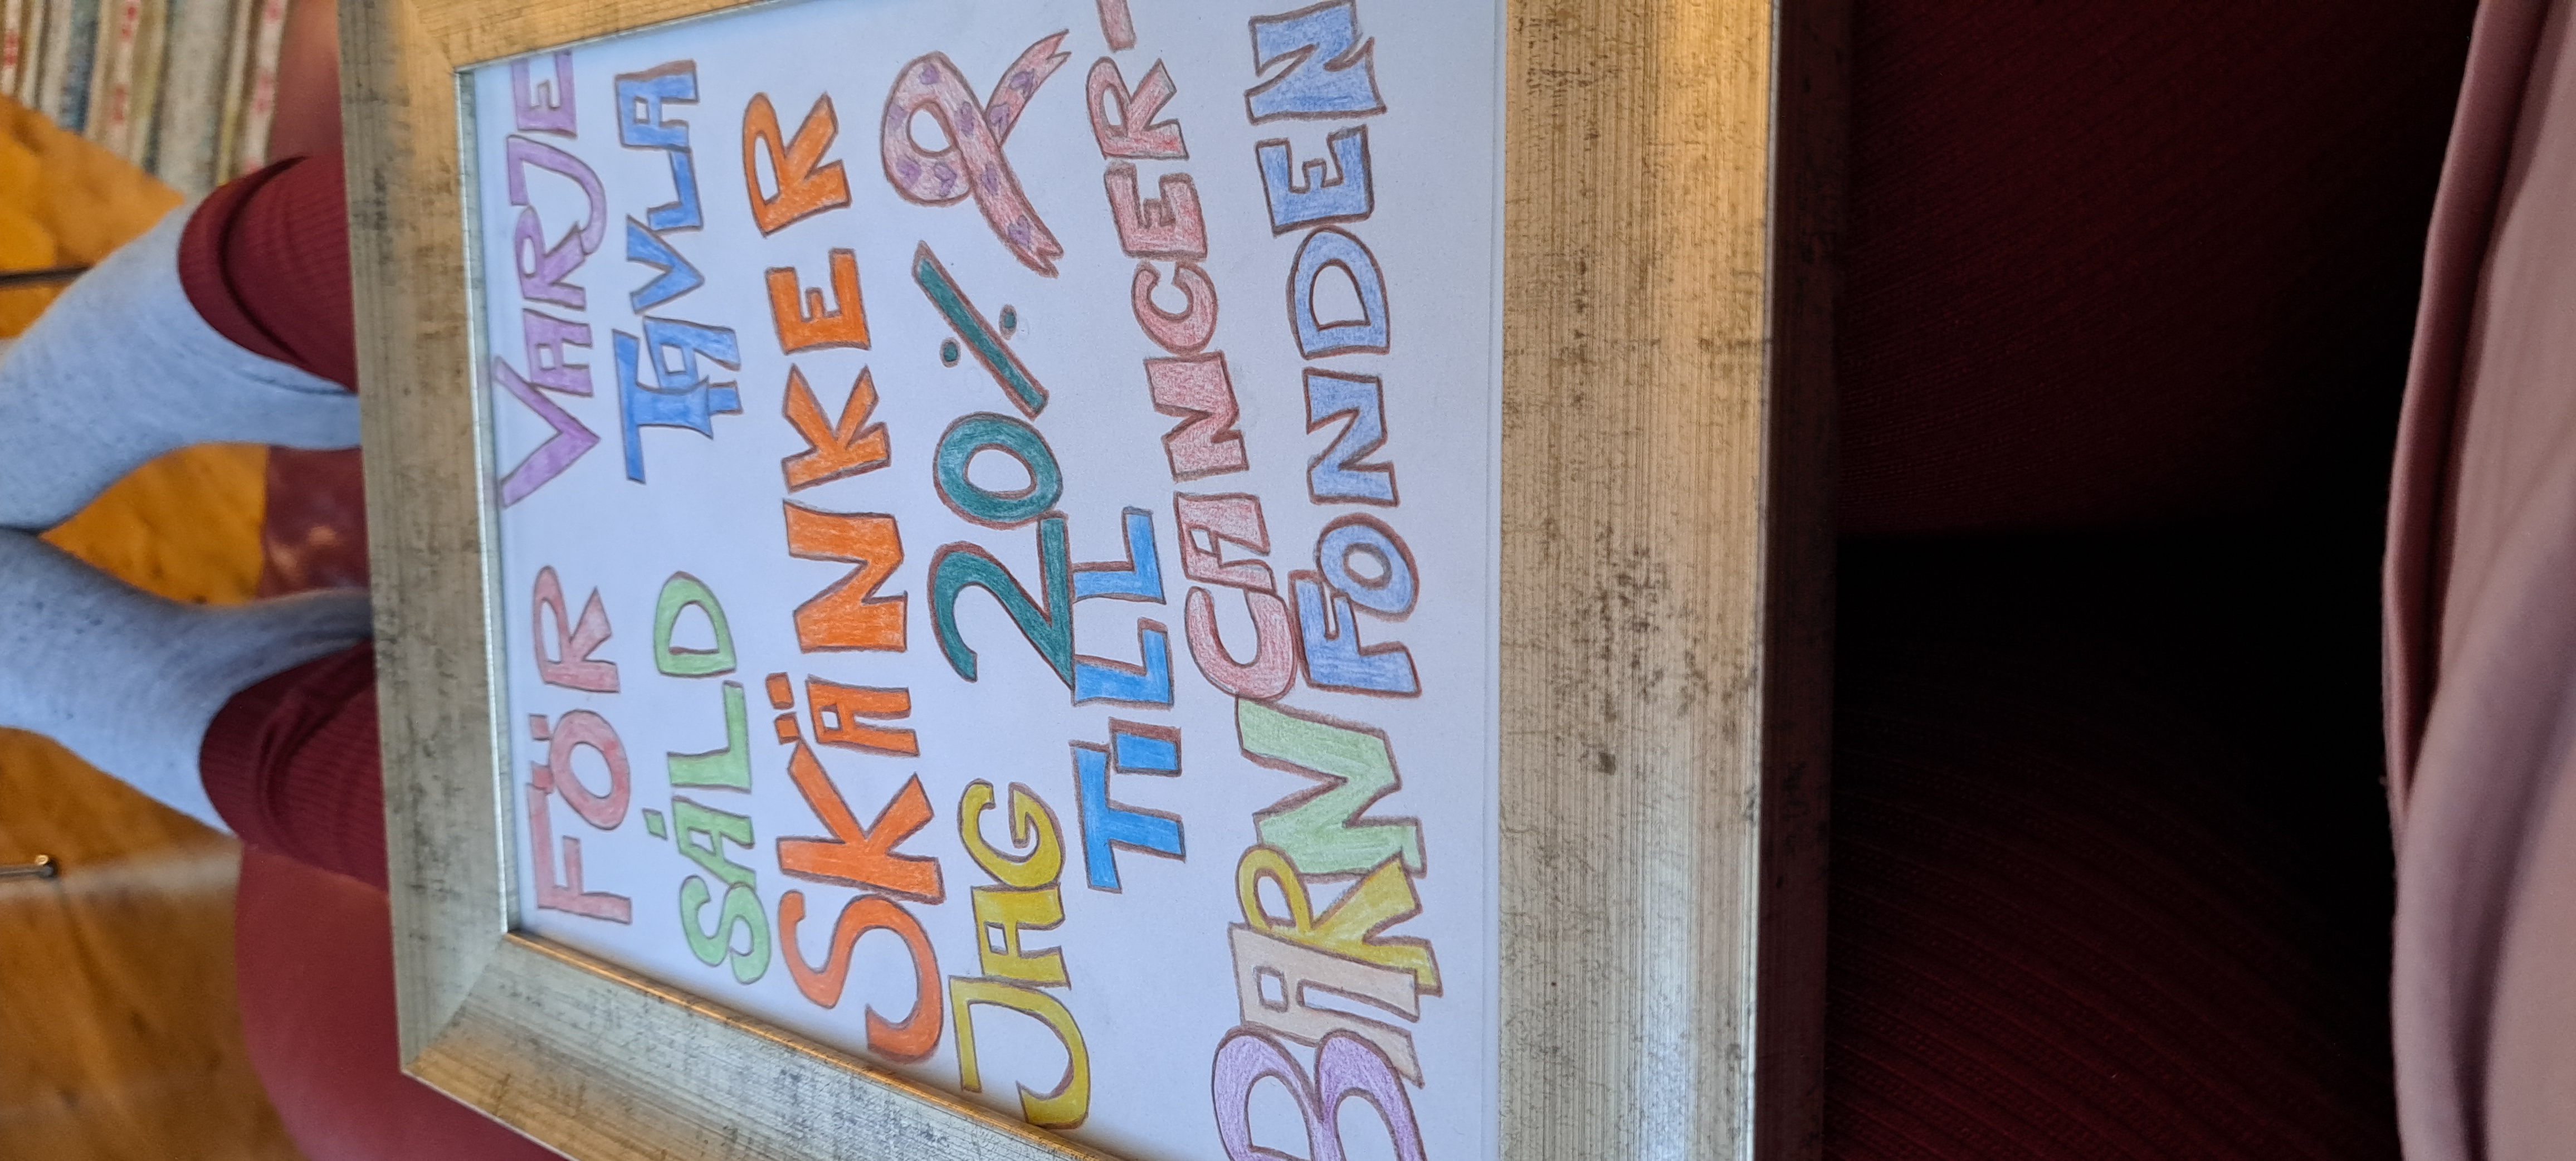 FÖR VARJE
SÅLD TAVLA
SKÄNKER
JAG 20%
TILL
BARNCANCER-
FONDEN